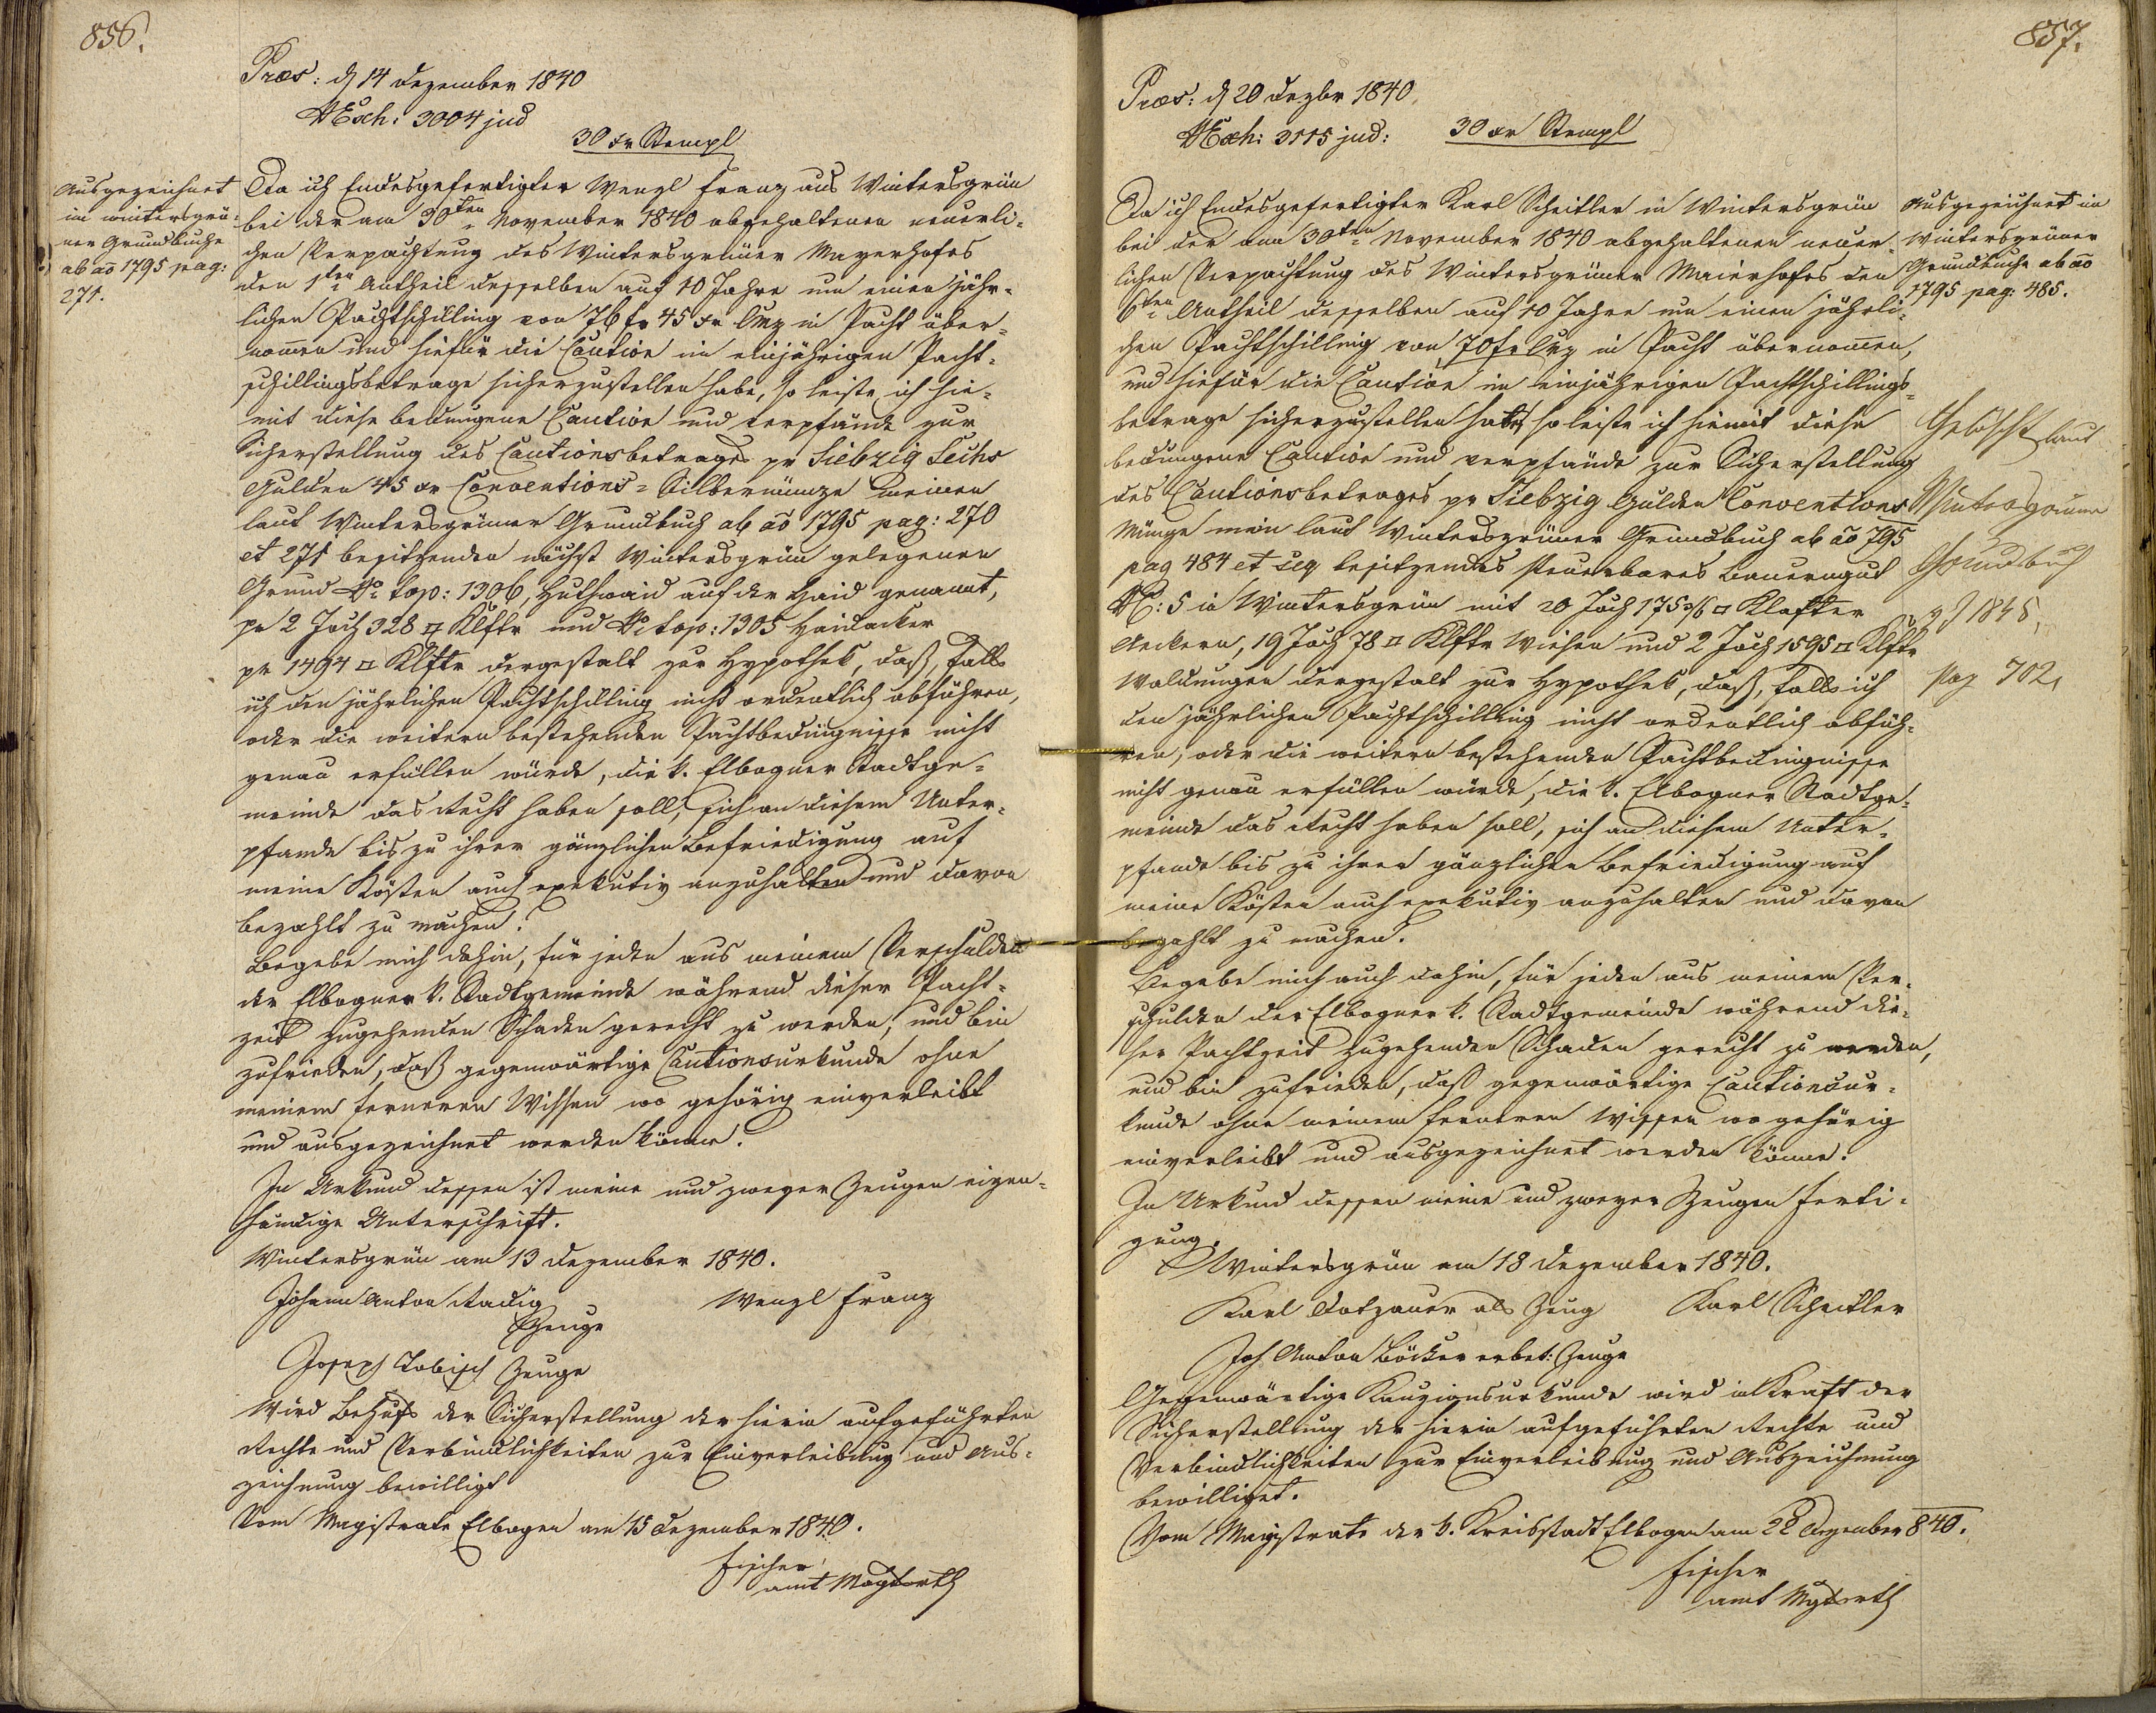 856.
Præs: d 14 Dezember 1840
NExh: 3004 jud
30 xr Stempl
Ausgezeichnet
im wintersgrü-
ner Grundbuche
ab ao 1795 pag:
271.
Da ich Endesgefertigter Wenzl Franz aus Wintersgrün
bei der am 30ten November 1840 abgehaltenen neuerli-
chen Verpachtung des Wintersgrüner Mayerhofes
den 1ten Antheil desselben auf 10 Jahre um einen jähr-
lichen Pachtschilling von 76 fr 45 xr CMz in Pacht über-
nomen und hiefür die Caution im einjährigen Pacht-
schillingsbetrage sicherzustellen habe, so leiste ich hie-
mit diese bedungene Caution und verpfände zur
Sicherstellung des Cautionsbetrages pr Siebzig Sechs
Gulden 45 xr Conventions-Silbermünze meinen
laut Wintersgrüner Grundbuch ab ao 1795 pag: 270
et 271 besitzenden nächst Wintersgrün gelegenen
Grund No top: 1306, Huthwaid auf der Haid genannt,
pr 2 Joch 328 □ Klftr und No top: 1305 Haidacker
pr 1494 □ Klftr dergestalt zur Hypothek, daß, falls
ich den jährlichen Pachtschilling nicht ordentlich abführen,
oder die weitern bestehenden Pachtbedingnisse nicht
genau erfüllen würde, die k. Elbogner Stadtge-
meinde das Recht haben soll, sich an diesem Unter-
pfande bis zu ihrer gänzlichen Befriedigung auf
meine Kösten auch exekutiv anzuhalten und davon
bezahlt zu machen.
Begebe mich dahin, für jeden aus meinem Verschulden
der Elbogner k. Stadtgemeinde während dieser Pacht-
zeit zugehenden Schaden gerecht zu werden, und bin
zufrieden, daß gegenwärtige Cautionsurkunde ohne
meinem ferneren Wissen wo gehörig einverleibt
und ausgezeichnet werden könne.
In Urkund dessen ist meine und zweyer Zeugen eigen-
händige Unterschrift.
Wintersgrün am 13 Dezember 1840.
Johann Anton Radig
Zeuge
Wenzl Franz
Joseph Tobisch Zeuge
Wird Behufs der Sicherstellung der hierin aufgeführten
Rechte und Verbindlichkeiten zur Einverleibung und Aus-
zeichnung bewilligt
Vom Magistrate Elbogen am 15 Dezember 1840.
Fischer
amt Magtsrth
857.
Præs: d 20 Dezbr 1840
NExh: 3115 jud:
30 xr Stempl
Da ich Endesgefertigter Karl Scheitler in Wintersgrün
bei der am 30ten November 1840 abgehaltenen neuer-
lichen Verpachtung des Wintersgrüner Maierhofes den
6ten Antheil desselben auf 10 Jahre um einen jährli-
chen Pachtschilling von 70 fr CMz in Pacht übernomen,
und hiefür die Caution im einjährigen Pachtschillings-
betrage sicherzustellen habe, so leiste ich hiemit diese
bedungene Caution und verpfände zur Sicherstellung
des Cautionsbetrages pr Siebzig Gulden Conventions
Münze mein laut Wintersgrüner Grundbuch ab ao 795
pag 484 et seq besitzendes steuerbares Bauerngut
NC: 5 in Wintersgrün mit 20 Joch 175 3/6 □ Klafter
Aeckern, 19 Joch 78 □ Klftr Wiesen und 2 Joch 1595 □ Klftr
Waldungen dergestalt zur Hypothek, daß, falls ich
den jährlichen Pachtschilling nicht ordentlich abfüh-
ren, oder die weitern bestehenden Pachtbedingnisse
nicht genau erfüllen würde, die k. Elbogner Stadtge-
meinde das Recht haben soll, sich an diesem Unter-
pfande bis zu ihrer gänzlichen Befriedigung auf
meine Kösten auch exekutiv anzuhalten und davon
bezahlt zu machen.
Begebe mich auch dahin, für jeden aus meinem Ver-
schulden der Elbogner k. Stadtgemeinde während die-
ser Pachtzeit zugehenden Schaden gerecht zu werden,
und bin zufrieden, daß gegenwärtige Cautionsur-
kunde ohne meinem ferneren Wissen wo gehörig
einverleibt und ausgezeichnet werden könne.
In Urkund dessen meine und zweyer Zeugen Ferti-
gung.
Wintersgrün am 18 Dezember 1840.
Karl Dotzauer als Zeug
Karl Scheitler
Joh Anton Böcker erbet: Zeuge
Gegenwärtige Kauzionsurkunde wird in Kraft der
Sicherstellung der hierin aufgeführten Rechte und
Verbindlichkeiten zur Einverleibung und Auszeichnung
bewilliget.
Vom Magistrate der k. Kreisstadt Elbogen am 22 Dezember 840.
Fischer
amt Mgtsrth
Ausgezeichnet im
Wintersgrüner
Grundbuche ab ao
1795 pag: 485.
Gelöscht laut
Wintersgrüner
Grundbuch
v J 1848,
pag 702,